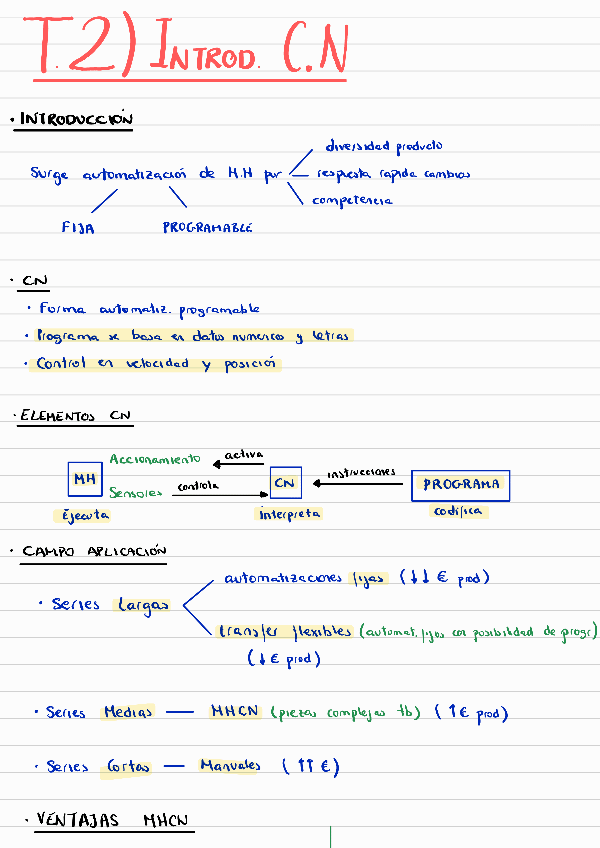 T.2) INTROD. C.N
· INTRODUCCIÓN
diversidad producto
Surge automatización de M.H por — respuesta rapida cambios
competencia
FIJA PROGRAMABLE
· CN
· Forma automatiz. programable
· Programa se basa en datos numerico y letras
· Control en velocidad y posición
· ELEMENTOS CN
MH Accionamiento ← activa CN ← instrucciones PROGRAMA
Sensores controla →
Ejecuta interpreta codifica
· CAMPO APLICACIÓN
automatizaciones fijas (↓↓ € prod)
· Series Largas
transfer flexibles (automat. fijas con posibilidad de progr)
(↓ € prod)
· Series Medias — MHCN (piezas complejas tb) (↑€ prod)
· Series Cortas — Manuales (↑↑ €)
· VENTAJAS MHCN